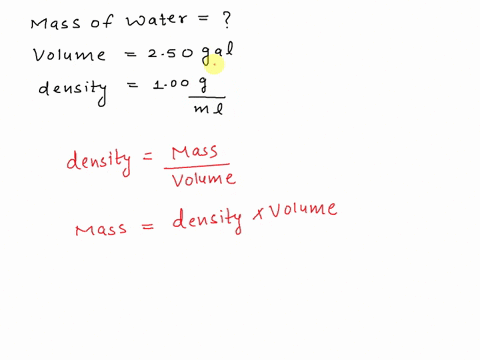 Mass of water = ?
Volume = 2.50 gal
density = 1.00 g
ml
density = Mass
Volume
Mass = density x Volume